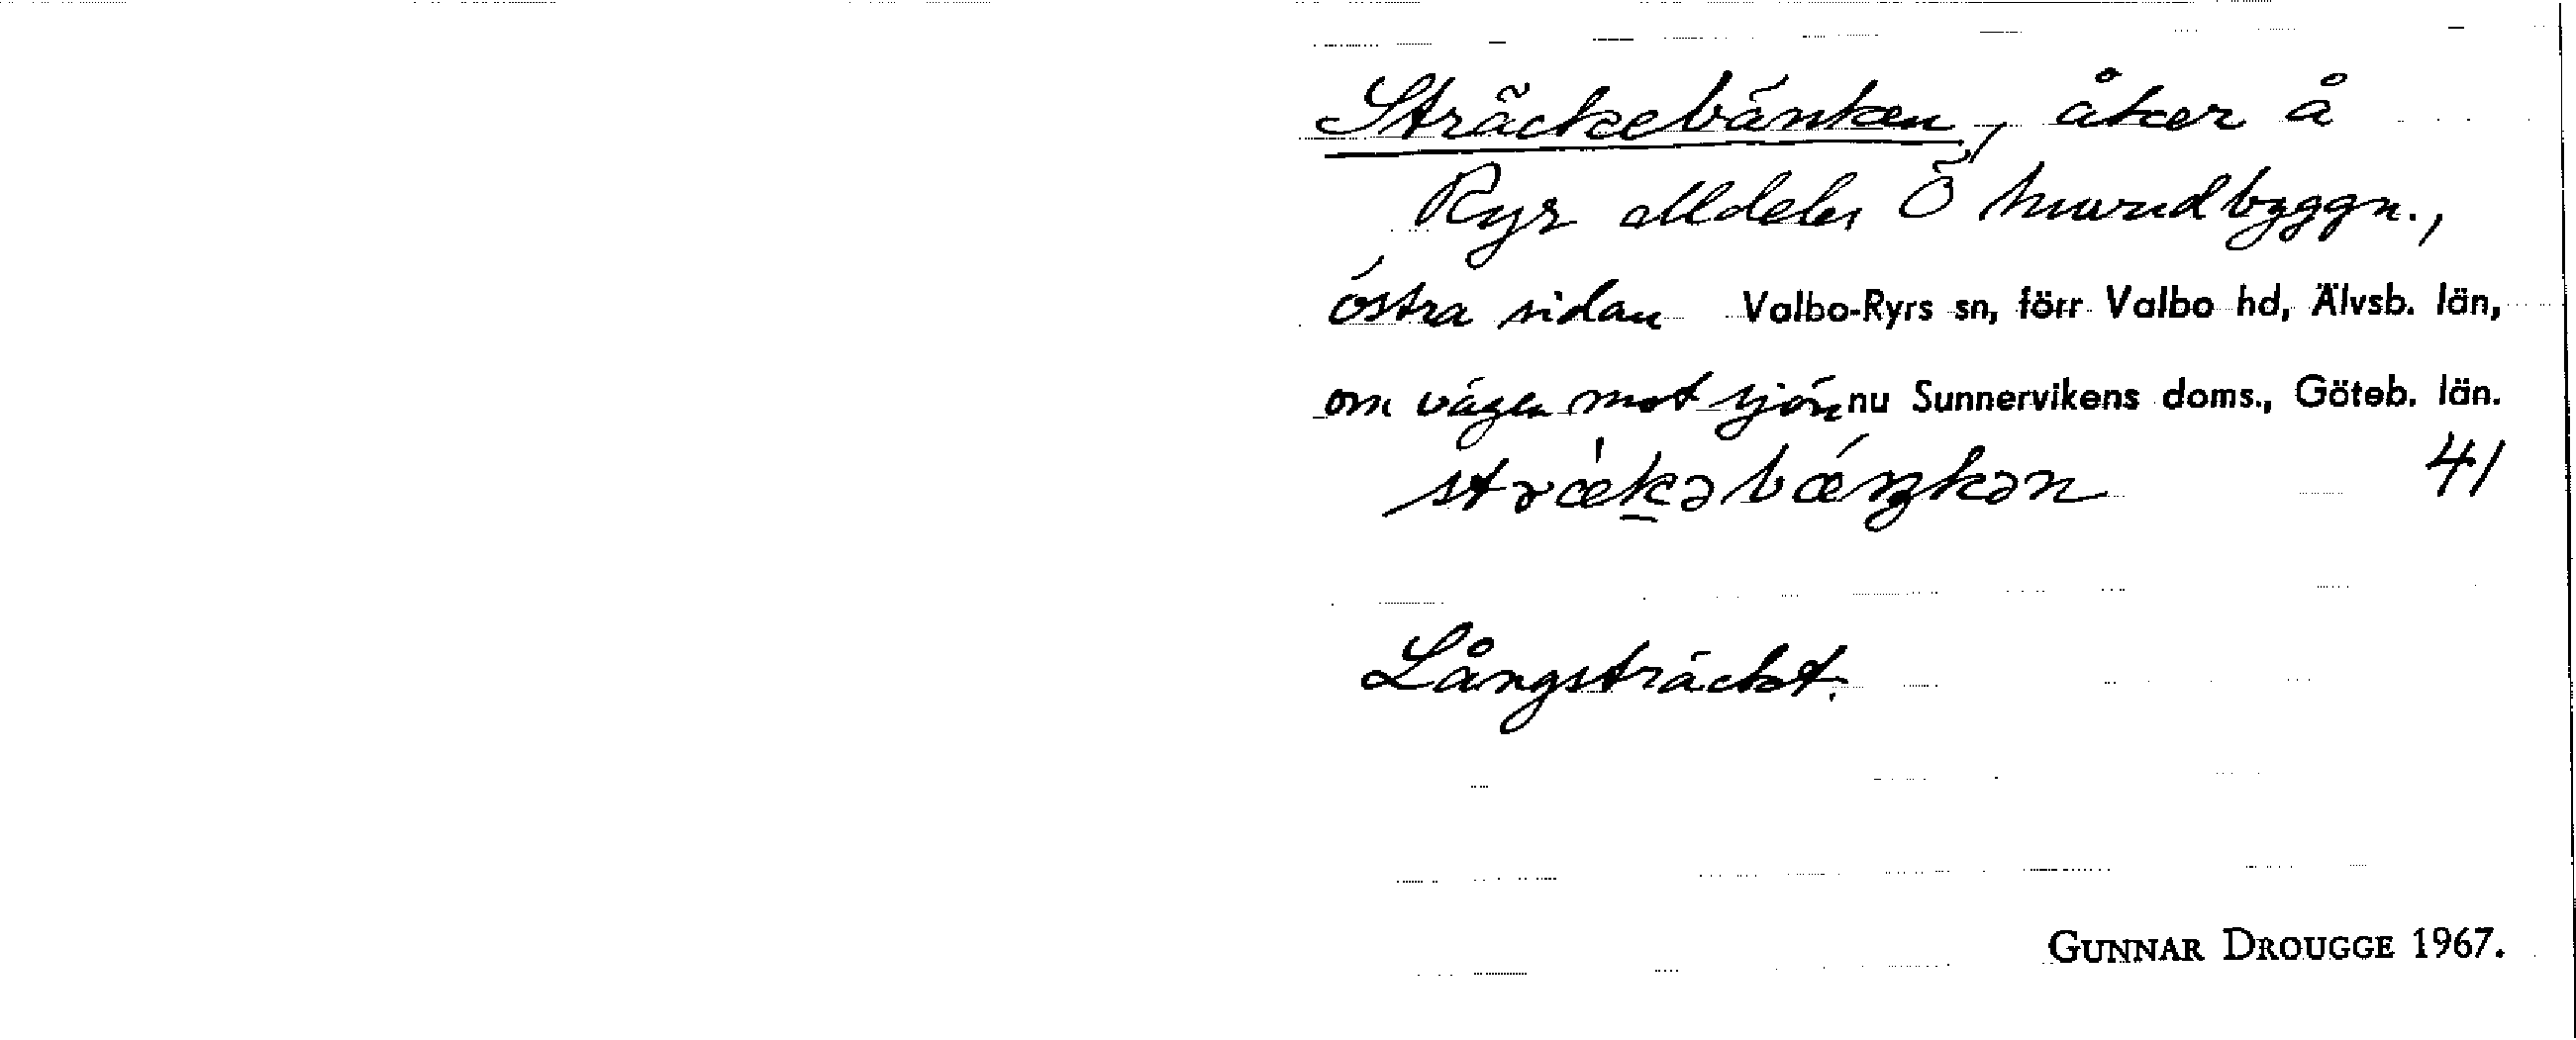 Sträckebänken, åker å
Ryr alldeles Ö huvudbyggn.,
östra sidan Valbo-Ryrs sn, förr Valbo hd, Älvsb. län,
om vägen mot sjön nu Sunnervikens doms., Göteb. län.
strækəbæŋkən 41
Långsträckt.
GUNNAR DROUGGE 1967.